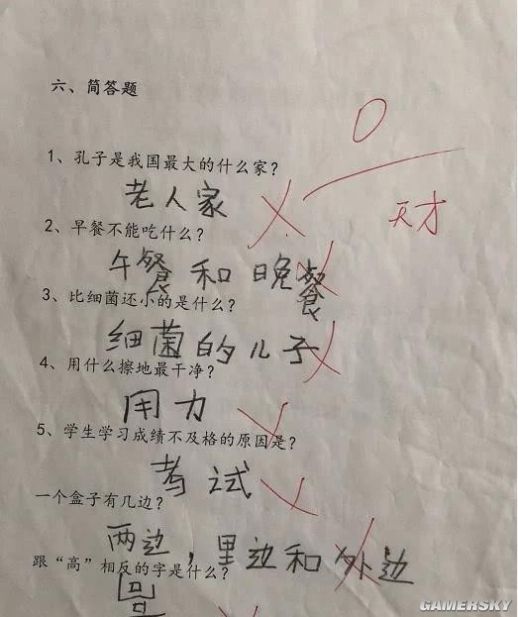 六、简答题
0
天才
1、孔子是我国最大的什么家?
老人家
2、早餐不能吃什么?
午餐和晚餐
3、比细菌还小的是什么?
细菌的儿子
4、用什么擦地最干净?
用力
5、学生学习成绩不及格的原因是?
考试
一个盒子有几边?
两边,里边和外边
跟“高”相反的字是什么?
GAMERSKY